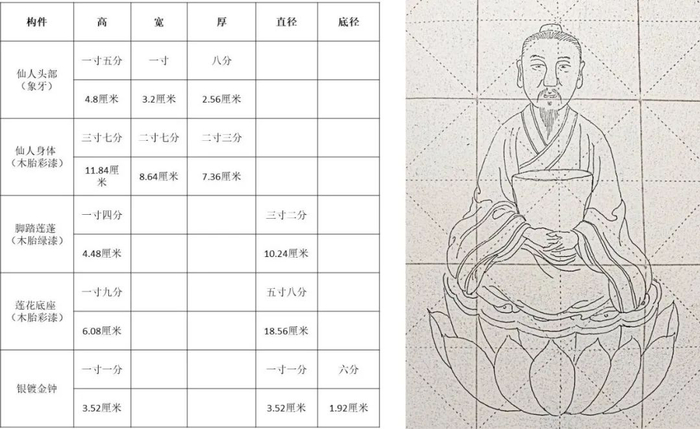 构件 高 宽 厚 直径 底径
仙人头部
（象牙）
一寸五分 一寸 八分
4.8厘米 3.2厘米 2.56厘米
仙人身体
（木胎彩漆）
三寸七分 二寸七分 二寸三分
11.84厘
米 8.64厘米 7.36厘米
脚踏莲蓬
（木胎绿漆）
一寸四分 三寸二分
4.48厘米 10.24厘米
莲花底座
（木胎彩漆）
一寸九分 五寸八分
6.08厘米 18.56厘米
银镀金钟
一寸一分 一寸一分 六分
3.52厘米 3.52厘米 1.92厘米